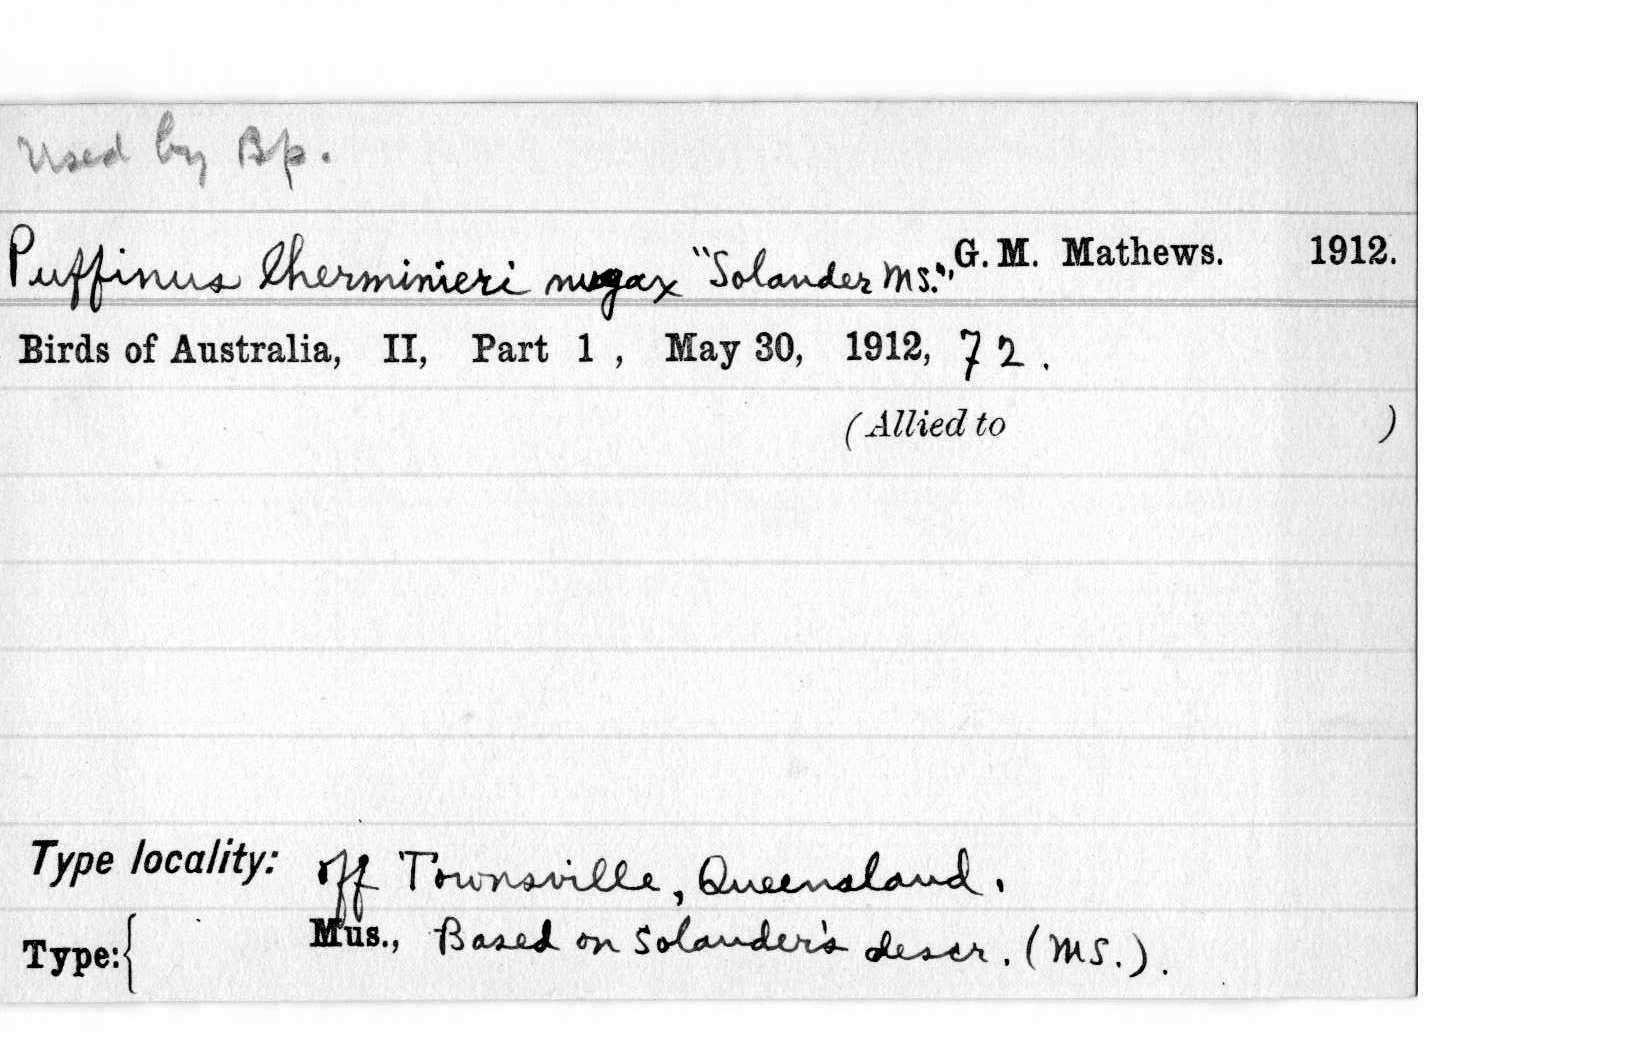 Used by Bp.
Puffinus lherminieri nugax "Solander MS." G. M. Mathews. 1912.
Birds of Australia, II, Part 1, May 30, 1912, 72.
(Allied to )
Type locality: off Townsville, Queensland.
Type:{ Mus., Based on Solander's descr. (MS.).